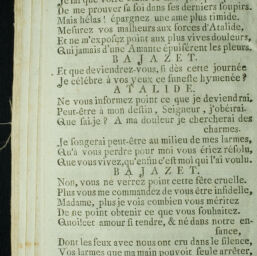 De me prouver sa foi dans ses derniers soupirs.
Mais hélas ! épargnez une ame plus timide.
Mesurez vos malheurs aux forces d'Atalide,
Et ne m'exposez point aux plus vives douleurs,
Qui jamais d'une Amante épuiserent les pleurs.
BAJAZET.
Et que deviendrez-vous, si dès cette journée
Je célebre à vos yeux ce funeste hymenée ?
ATALIDE.
Ne vous informez point ce que je deviendrai.
Peut-être à mon destin, Seigneur, j'obéirai.
Que sai-je ? A ma douleur je chercherai des
charmes.
Je songerai peut-être au milieu de mes larmes,
Qu'à vous perdre pour moi vous étiez résolu,
Que vous vivez, qu'enfin c'est moi qui l'ai voulu.
BAJAZET.
Non, vous ne verrez point cette fête cruelle.
Plus vous me commandez de vous être infidelle,
Madame, plus je vois combien vous méritez
De ne point obtenir ce que vous souhaitez.
Quoi cet amour si tendre, & né dans notre en-
fance,
Dont les feux avec nous ont cru dans le silence,
Vos larmes que ma main pouvoit seule arrêter,